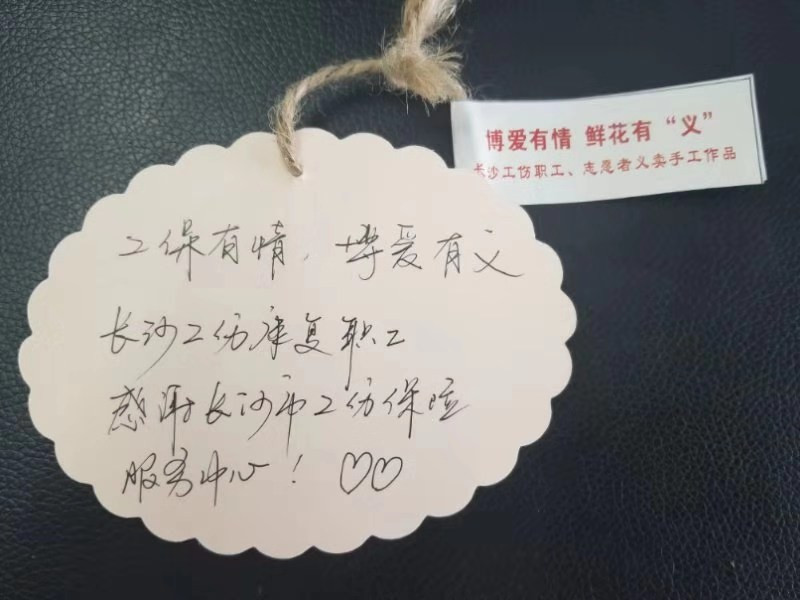 博爱有情 鲜花有“义”
长沙工伤职工、志愿者义卖手工作品
工保有情，博爱有义
长沙工伤康复职工
感谢长沙市工伤保险
服务中心！♡♡